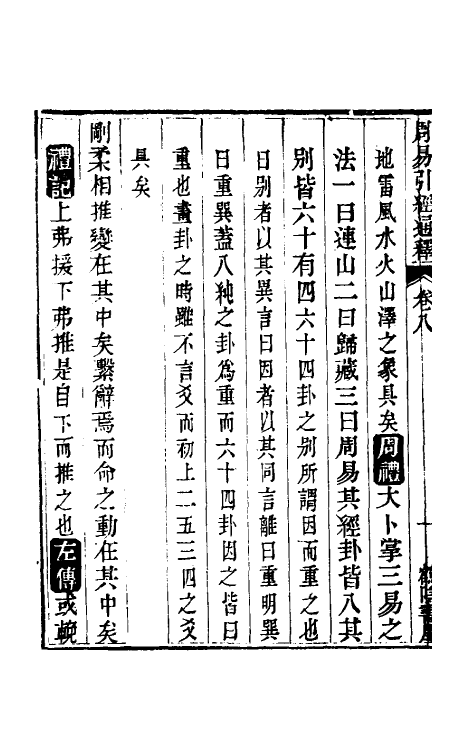 周易引經通釋 卷八 十
地雷風水火山澤之象具矣周禮大卜掌三易之
法一曰連山二曰歸藏三曰周易其經卦皆八其
別皆六十有四六十四卦之別所謂因而重之也
曰別者以其異言曰因者以其同言離曰重明巽
曰重巽蓋八純之卦為重而六十四卦因之皆曰
重也畫卦之時雖不言爻而初上二五三四之爻
具矣
剛柔相推變在其中矣繫辭焉而命之動在其中矣
禮記上弗援下弗推是自下而推之也左傳或輓